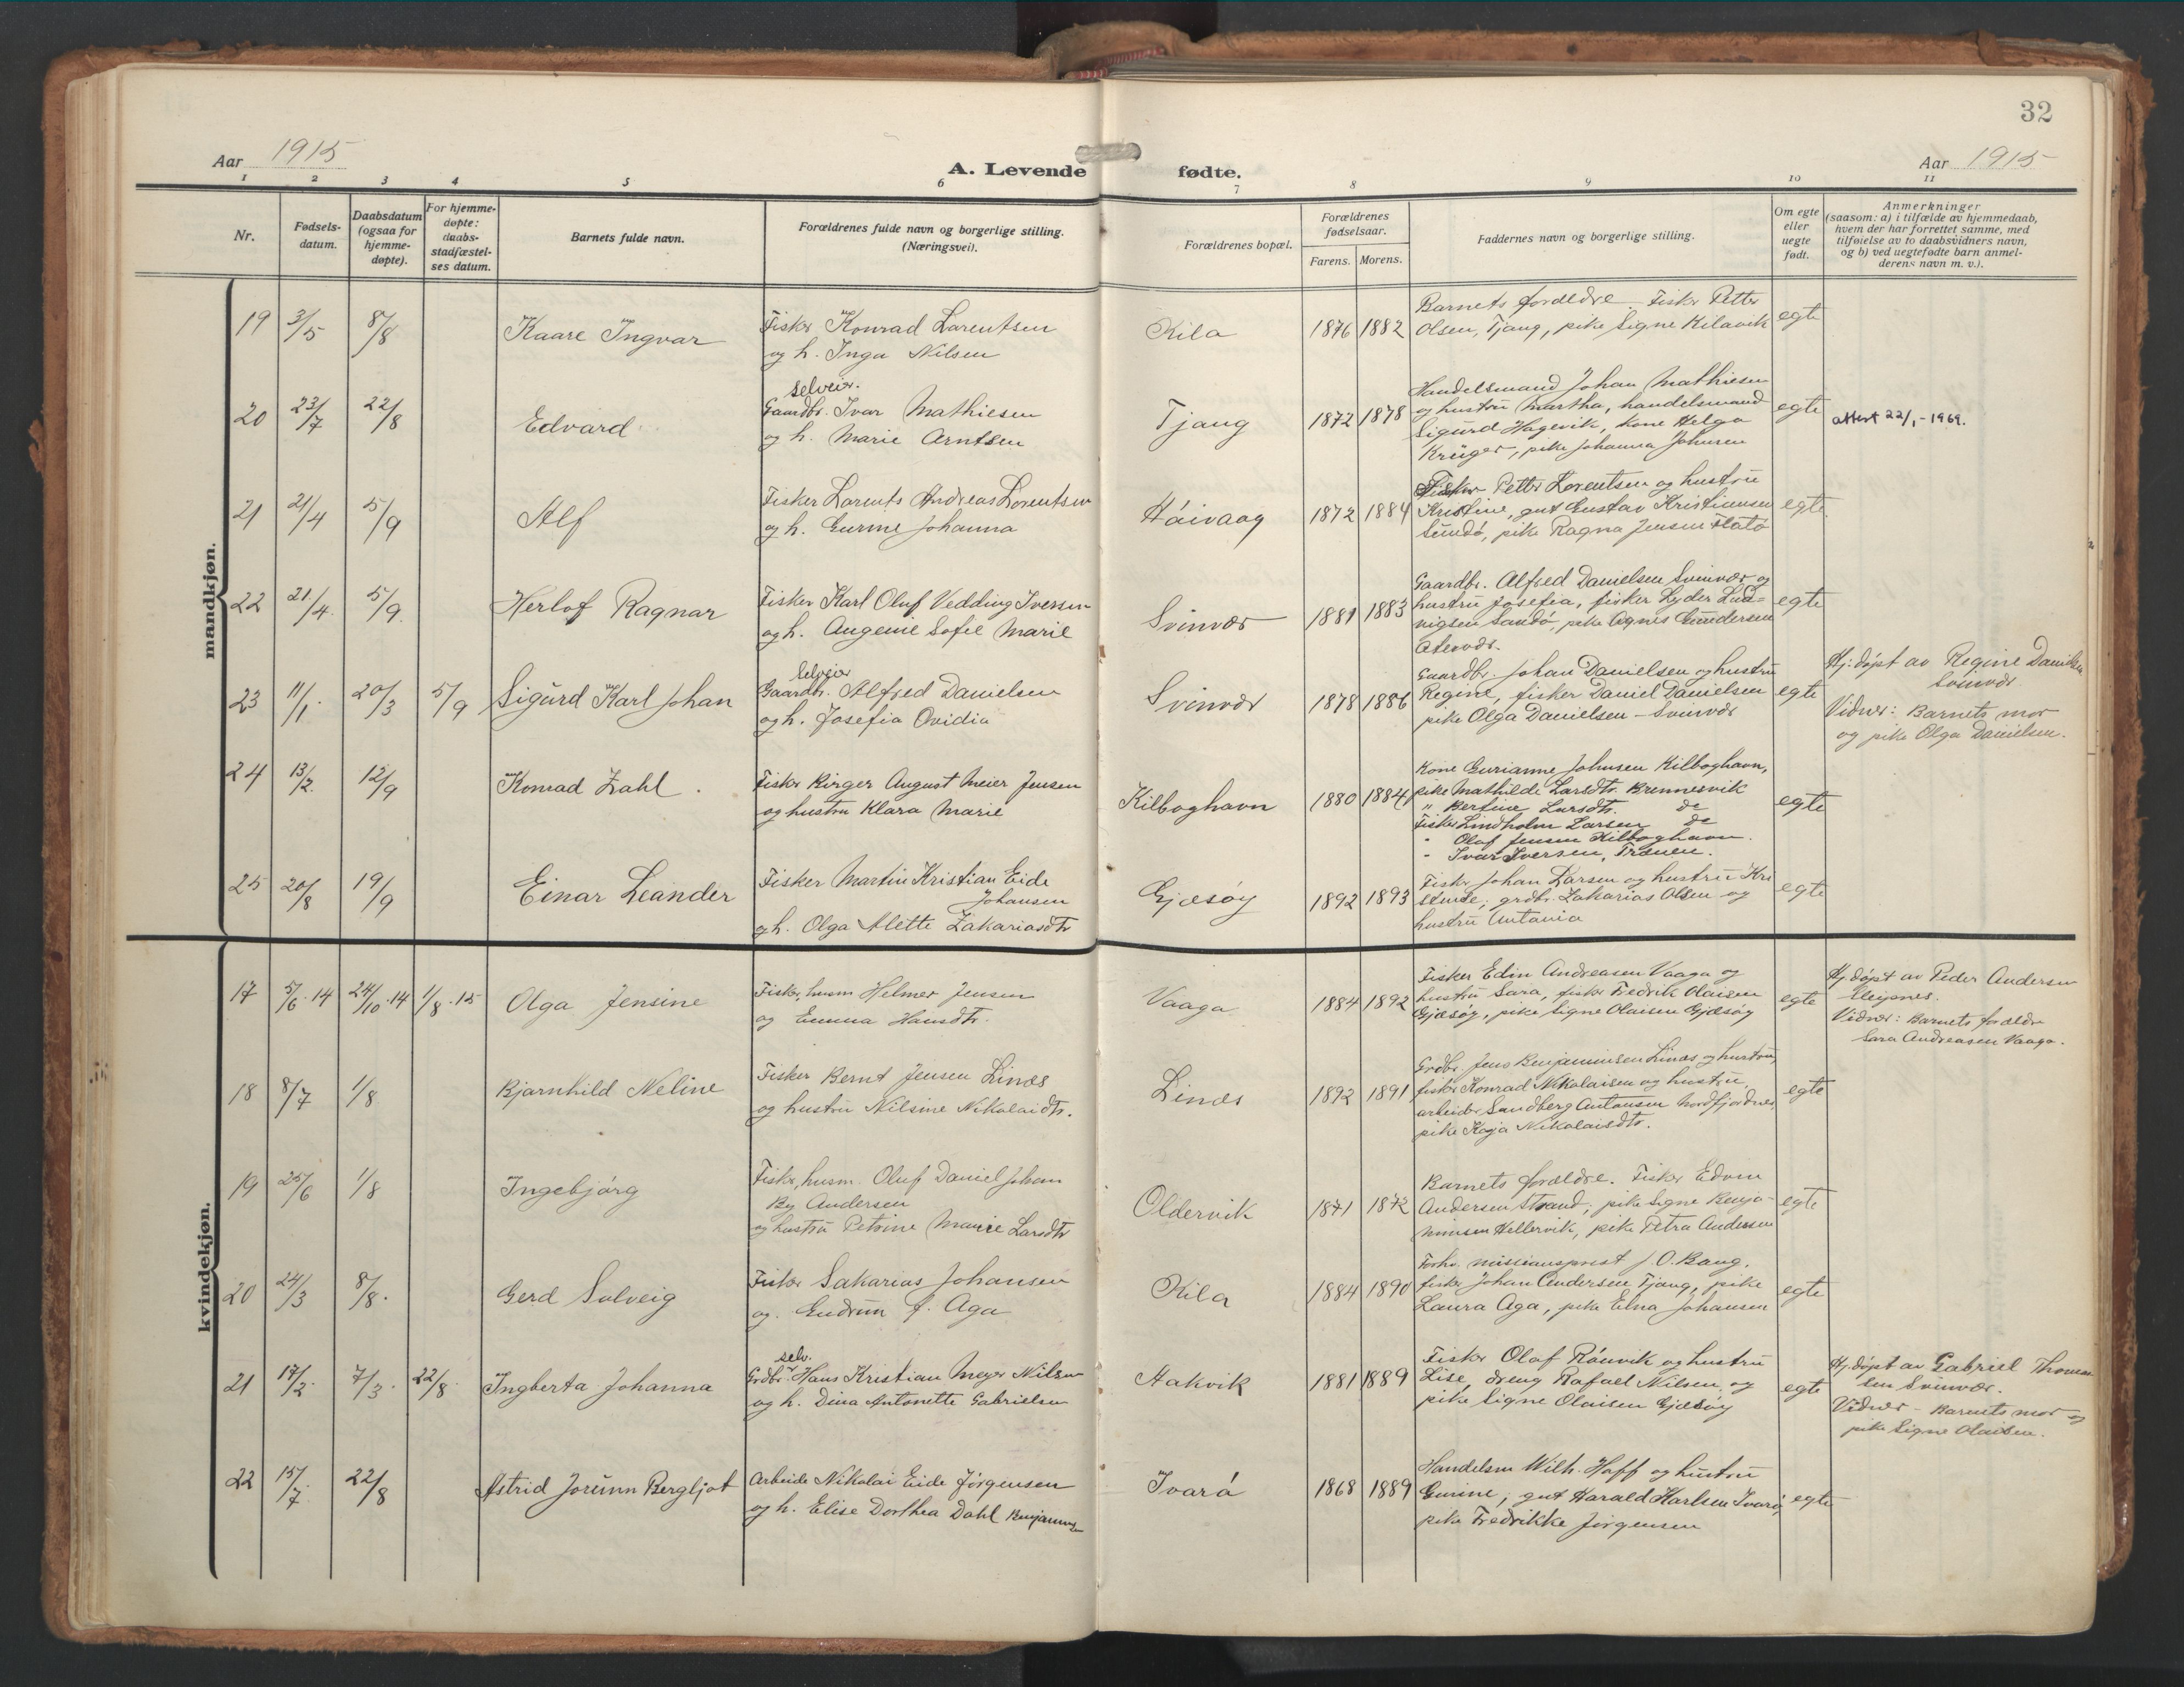 32
Aar 1915
A. Levende fødte.
Aar 1915
1 2 3 4 5 6 7 8 9 10 11
Nr.
Fødsels-
datum.
Daabsdatum
(ogsaa for
hjemme-
døpte).
For hjemme-
døpte:
daabs-
stadfæstel-
ses datum.
Barnets fulde navn.
Forældrenes fulde navn og borgerlige stilling.
(Næringsvei).
Forældrenes bopæl.
Forældrenes
fødselsaar.
Farens. Morens.
Faddernes navn og borgerlige stilling.
Om egte
eller
uegte
født.
Anmerkninger
(saasom: a) i tilfælde av hjemmedaab,
hvem der har forrettet samme, med
tilføielse av to daabsvidners navn,
og b) ved uegtefødte barn anmel-
derens navn m. v.).
mandkjøn.
19 3/5 8/8 Kaare Ingvar
Fisker Konrad Larentsen
og h. Inga Nilsen
Kila 1876 1882
Barnets forældre Fisker Petter
Olsen, Tjang, pike Signe Kilavik
egte
20 23/7 22/8 Edvard
selveier.
Gaardbr. Ivar Mathiesen
og h. Marie Arntsen
Tjang 1872 1878
Handelsmand Johan Mathiesen
og hustru Martha, handelsmand
Sigurd Hagevik, kone Helga
Krüger, pike Johanna Johnsen
egte
attest 22/1-1969.
21 21/4 5/9 Alf
Fisker Larents Andreas Lorentsen
og h. Gurine Johanna
Håivaag 1872 1884
Fisker Petter Lorentsen og hustru
Kristine, gut Gustav Kristiansen
Sundø, pike Ragna Jensen Flatø
egte
22 21/4 5/9 Herlof Ragnar
Fisker Karl Oluf Vedding Iversen
og h. Angenie Sofie Marie
Svinvær 1881 1883
Gaardbr. Alfred Danielsen Svinvær og
hustru Josefia, fisker Lyder Lud=
vigsen Sandø, pike Agnes Gundersen
Otervær.
egte
23 11/1 20/3 5/9 Sigurd Karl Johan
Selveier
Gaardbr. Alfred Danielsen
og h. Josefia Ovidia
Svinvær 1878 1886
Gaardbr. Johan Danielsen og hustru
Regine, fisker Daniel Danielsen
pike Olga Danielsen - Svinvær
egte
Hj. døpt av Regine Danielsen
Svinvær
Vidner: Barnets mor
og pike Olga Danielsen.
24 13/2 12/9 Konrad Zahl.
Fisker Birger August Meier Jensen
og hustru Klara Marie
Kilboghavn 1880 1884
Kone Gurianne Johnsen Kilboghavn,
pike Mathilde Larsdtr. Brennesvik
" Berfine Larsdtr. do
Fisker Lindholm Larsen do
" Olaf Jensen Kilboghavn.
" Ivar Iversen, Trænen.
egte
25 20/8 19/9 Einar Leander
Fisker Martin Kristian Eide
Johansen
og h. Olga Alette Zakariasdtr
Gjæsøy 1892 1893
Fisker Johan Larsen og hustru Kri
stense, grdbr. Zakarias Olsen og
hustru Antania
egte
kvindekjøn.
17 5/6.14 24/10.14 1/8.15 Olga Jensine
Fisker, husm Helmer Jensen
og Emma Hansdtr.
Vaaga 1884 1892
Fisker Edin Andreasen Vaaga og
hustru Sara, fisker Fredrik Olaisen
Gjæsøy, pike Signe Olaisen Gjæsøy
egte
Hj. døpt av Peder Andersen
Sleipnes.
Vidner: Barnets forældre
Sara Andreasen Vaaga.
18 8/7 1/8 Bjarnhild Neline
Fisker Bernt Jensen Linæs
og hustru Nilsine Nikolaidtr.
Linæs 1892 1891
Grdbr. Jens Benjaminsen Linæs og hustru,
fisker Konrad Nikolaisen og hustru,
arbeider Sandberg Antonsen Nordfjordnes,
pike Kaja Nikolaisdtr.
egte
19 25/6 1/8 Ingebjørg
Fisker, husm. Oluf Daniel Johan
By Andersen
og hustru Petrine Marie Larsdtr
Oldervik 1871 1872
Barnets forældre. Fisker Edvin
Andersen Strand, pike Signe Benja-
minsen Hellervik, pike Petra Andersen
egte
20 24/3 8/8. Gerd Solveig
Fisker Sakarias Johansen
og Gudrun f. Aga
Kila 1884 1890
Forhv. missionsprest J. O. Bang,
fisker Johan Andersen Tjang, pike
Laura Aga, pike Elna Johansen
egte
21 17/2 7/3. 22/8 Ingberta Johanna
selv.
Grdbr. Hans Kristian Meyer Nilsen
og h. Dina Antonette Gabrielsen
Aakvik 1881 1889
Fisker Olaf Rånvik og hustru
Lise, dreng Rafael Nilsen og
pike Signe Olaisen Gjæsøy
egte
Hj. døpt av Gabriel Thomas-
sen Svinvær.
Vidner - Barnets mor og
pike Signe Olaisen.
22 15/7 22/8 Astrid Jorunn Bergljot
Arbeide Nikolai Eide Jörgensen
og h. Elise Dorthea Dahl Benjaminsen
Ivarå 1868 1889
Handelsm Wilh. Hoff og hustru
Gunine, gut Harald Karlsen Ivarå,
pike Fredrikke Jörgensen
egte